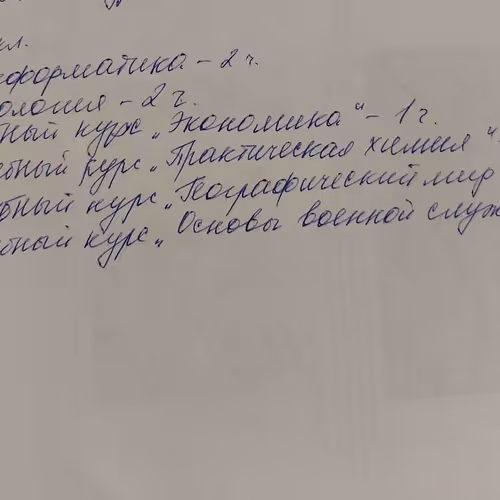 кл.
нформатика - 2 ч.
ология - 2 ч.
ный курс „Экономика" - 1 ч.
ебный курс „Практическая химия"
бный курс „Географический мир
бный курс „Основы военной служ